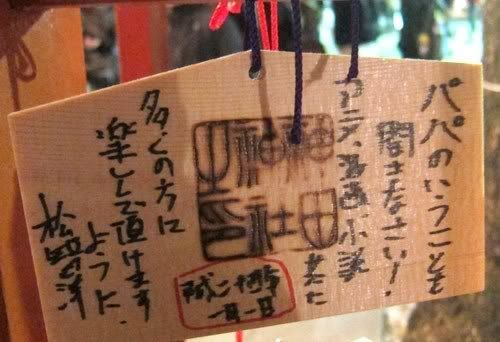 パパのいうことを
聞きなさい!
アニメ、漫画、小説
多くの方に
楽しんで頂けます
ように
松智洋
神田
神社
之印
一月一日